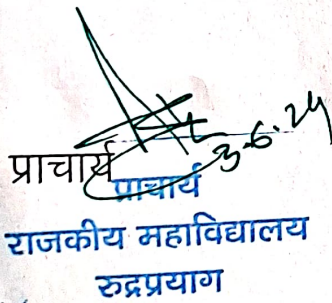 3-6-24
प्राचार्य
प्राचार्य
राजकीय महाविद्यालय
रुद्रप्रयाग